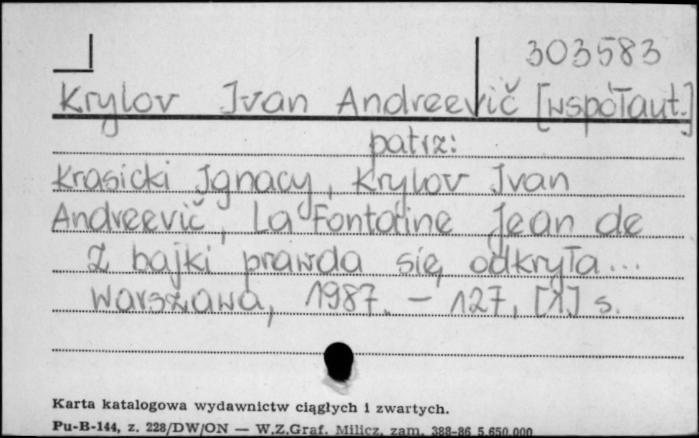 303583
Krylov Ivan Andreevič [współaut.]
patrz:
Krasicki Ignacy, Krylov Ivan
Andreevič, La Fontaine Jean de
Z bajki prawda się odkryła...
Warszawa, 1987. - 127, [1] s.
Karta katalogowa wydawnictw ciągłych i zwartych.
Pu-B-144, z. 228/DW/ON — W.Z.Graf. Milicz, zam. 388-86 5.650.000